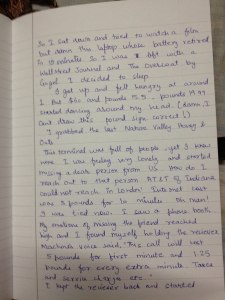 So I sat down and tried to watch a film
but damn this laptop whose battery retired
in 10 minutes. So I was left with a
Wall Street Journal and The Overcoat by
Gogol. I decided to sleep.
I got up and felt hungry at around
1 Am. $60 and pounds 5.5 ... pounds 19.99
started dancing around my head (damn, I
Can't draw this pound sign correct!)
I grabbed the last Nature Valley Honey &
Oats.
This terminal was full of people yet I knew
none. I was feeling very lonely and started
missing a dear person from US. How do I
reach out to that person. AT&T of Indiana
could not reach in London! Internet cost
was 5 pounds for 10 minute. Oh man!
I was tied now. I saw a phone booth.
My emotions of missing the friend reached
high and I found myself holding the reciever
Machine's voice said, "The call will cost
5 pounds for first minute and 1.25
pounds for every extra minute. Taxes
and service charges are."
I kept the reciever back and started